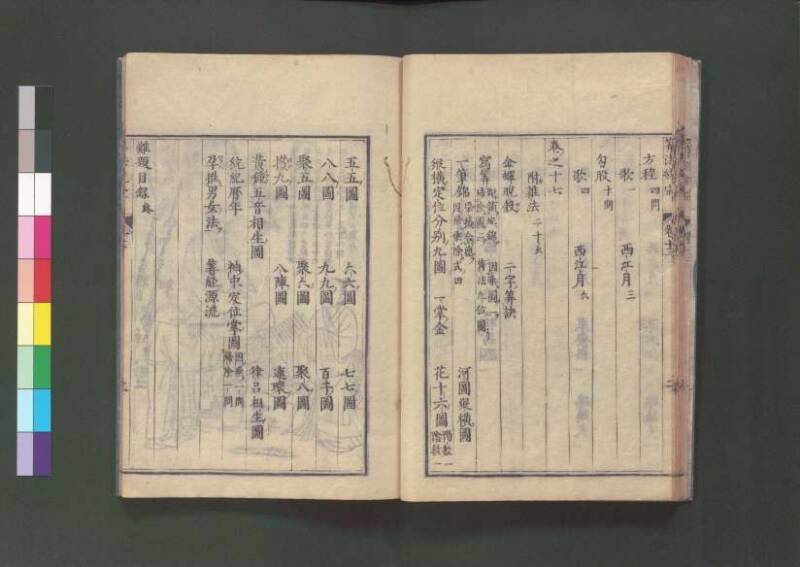 方程 四問
歌 一 西江月 三
勾股 十問
歌 四 西江月 六
卷之十七
附雜法 二十六
金蟬脫殼 二字算訣
寫算
一筆錦
縱橫 河圖縱橫圖
定位分別九圖 一掌金 花十六圖 陽數一 陰數一
五五圖 六六圖 七七圖
八八圖 九九圖 百子圖
聚五圖 聚六圖 聚八圖
攢九圖 八陣圖 連環圖
黃鐘五音相生圖 律呂相生圖
統紀曆年 袖中定位掌圖 因乘一問 歸除一問
孕推男女法 筭經源流
難題目錄 終